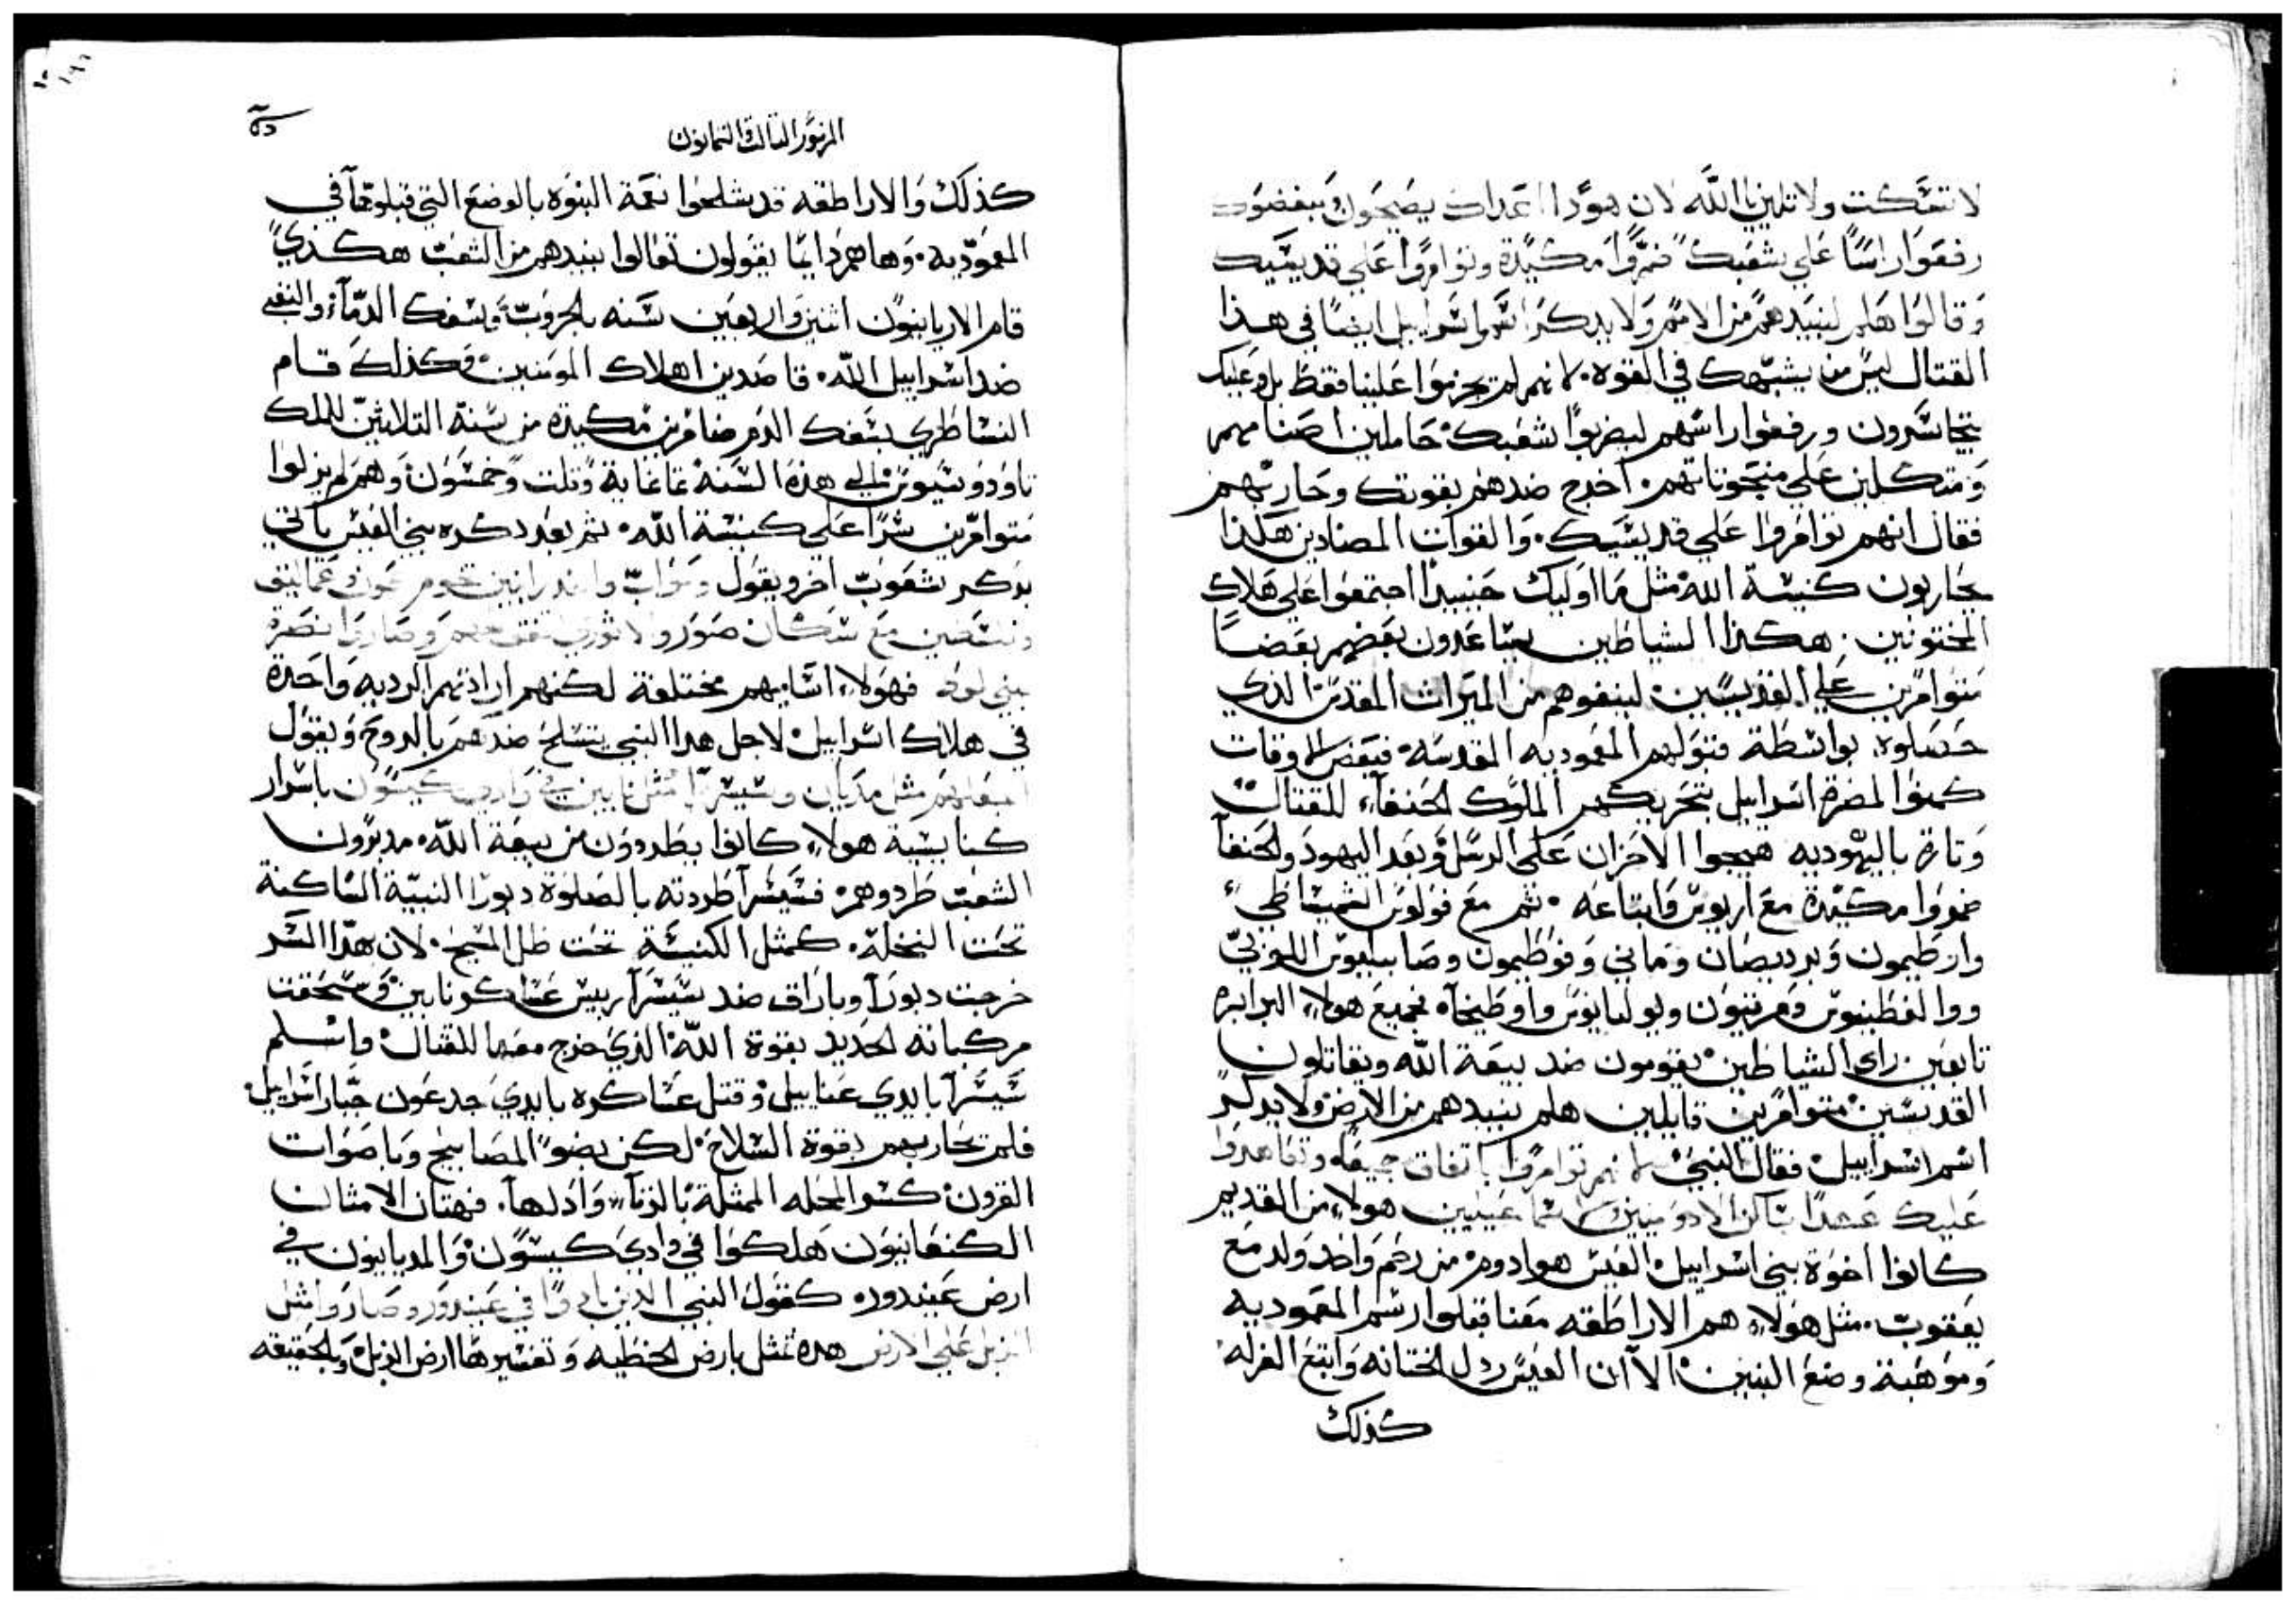 لا تسكت ولا تلين يا الله لان هوذا اعداك يضجون ومبغضوك
رفعوا راسًا علي شعبك ضمروا مكيدة وتوامروا علي قديسيك
وقالوا هلم لنبيدهم من الامم ولا يدكر اسم اسراييل ايضًا في هذا
القتال ليس من يشبهك في القوه. لانهم لم يحزموا علينا فقط بل وعليك
يتجاسرون ورفعوا راسهم ليضربوا شعبك حاملين اصنامهم
ومتكلين علي منحوتاتهم. اخرج ضدهم بقوتك وحاربهم
فقال انهم توامروا علي قديسيك. والقوات المضادين هكذا
يحاربون كنيسة الله مثل ما اوليك حينيدًا اجتمعوا علي هلاك
المختونين. هكذا الشياطين يساعدون بعضهم بعضًا
متوامرين علي القديسين لينفوهم من الميرات المقدس الذي
حصلوه بواسطة قبولهم المعموديه المقدسه فبعض الاوقات
كمنوا لمضرة اسراييل بتحريكهم الملوك الحنفاء للقتال
وتارة باليهوديه هيجوا الاحزان علي الرسل وبعد اليهود والحنفا
ضمروا مكيدة مع اريوس واتباعه. ثم مع فولوس الشميشاطي
وارطيمون وبرديصان وماني وفوطيمون وصابيليوس اللوبي
ووالنطينوس ومرقيون ويوليانوس واوطيخاه فجميع هولاء البرابره
تابعين راي الشياطين يقومون ضد بيعة الله ويقاتلون
القديسين متوامرين قايلين هلم نبيدهم من الارض ولا يدكر
اسم اسراييل فقال النبي لانهم توامروا باتفاق جميعًا وتعاهدوا
عليك عهدًا مساكن الادوميين والاسماعيليين هولاء من القديم
كانوا اخوة بني اسراييل العيس هو ادوم من رحم واحد ولد مع
يعقوب. مثل هولاء هم الاراطقه معنا قبلوا رسم المعموديه
وموهبة وضع البنين الا ان العيس ردل الختانه واتبع الغرله
كذلك
المزمور التالت والتمانون
كذلك والاراطقه قد شلحوا نعمة البنوه بالوضع التي قبلوها في
المعموديه. وها هم دايمًا يقولون تعالوا نبيدهم من الشعب هكذي
قام الاريانيون اثنين واربعين سنه بالحروب وبسفك الدماء والنفي
ضد اسراييل الله. قاصدين اهلاك المومنين وكذلك قام
النساطري بسفك الدم ضامرين مكيده من سنة التلاتين للملك
تاودوسيوس الي هذه السنة تمانماية وتلت وخمسون وهم لم يزلوا
متوامرين سرًا علي كنيسة الله. ثم بعد دكره بني العيس ياتي
بدكر شعوب اخر ويقول وموآب والهدرانيين تخوم عمون وعماليق
وفلسطين مع سكان صور والاثوري اتفق معهم وصاروا نصرة
بني لوط فهولاء اساميهم مختلفة لكنهم ارادتهم الرديه واحدة
في هلاك اسراييل لاجل هدا النبي يتسلح ضدهم بالروح ويقول
اصنع بهم مثل مديان وسيسرا مثل نابين في وادي كيسون باسرار
كنايسية هولاء كانوا يطردون من بيعة الله. مدبرون
الشعب طردوهم فسيسرا طردته بالصلوة دبورا النبية الساكنة
تحت النخله. كمثل الكنيسة تحت ظل المسيح. لان هدا السر
خرجت دبورا وباراق ضد سيسرا رييس عساكر نابين وسحقت
مركباته الحديد بقوة الله الذي خرج معها للقتال واسلم
سيسرا بايدي عناييل وقتل عساكره بايدي جدعون جبار اسراييل.
فلم يحاربهم بقوة السلاح لكن بضو المصابيح وباصوات
القرون كسر المحله الممثلة بالزنا وادلها. فهتان الامتان
الكنعانيون هلكوا في وادي كيسون والمديانيون في
ارض عيندور كقول النبي الدين بادوا في عيندور وصاروا مثل
الزبل علي الارض هده تمثل بارض الخطيه وتفسيرها ارض الزبل وبالحقيقه